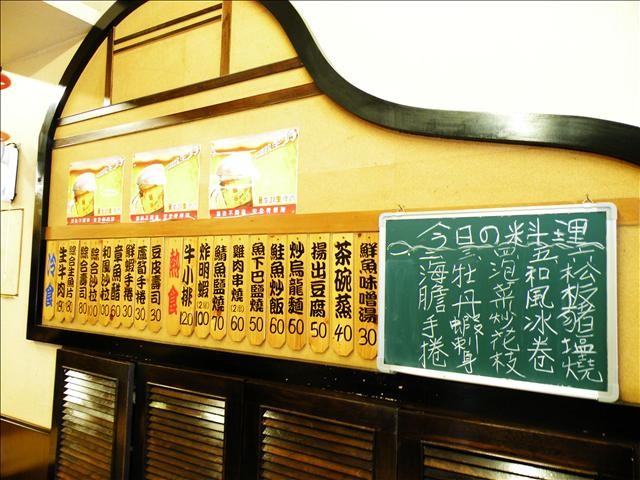 冷食
生牛肉
綜合生魚片
綜合壽司 80
綜合沙拉 100
和風沙拉 100
章魚醋 60
鮮蝦手捲 30
蘆筍手捲 30
豆皮壽司 30
熱食
牛小排 120
炸明蝦 100
鯖魚鹽燒 70
雞肉串燒 60
魚下巴鹽燒 50
鮭魚炒飯 60
炒烏龍麵 60
揚出豆腐 50
茶碗蒸 40
鮮魚味噌湯 30
今日の料理
松板豬塩燒
五和風冰卷
泡菜炒花枝
牡丹蝦
海膽手捲